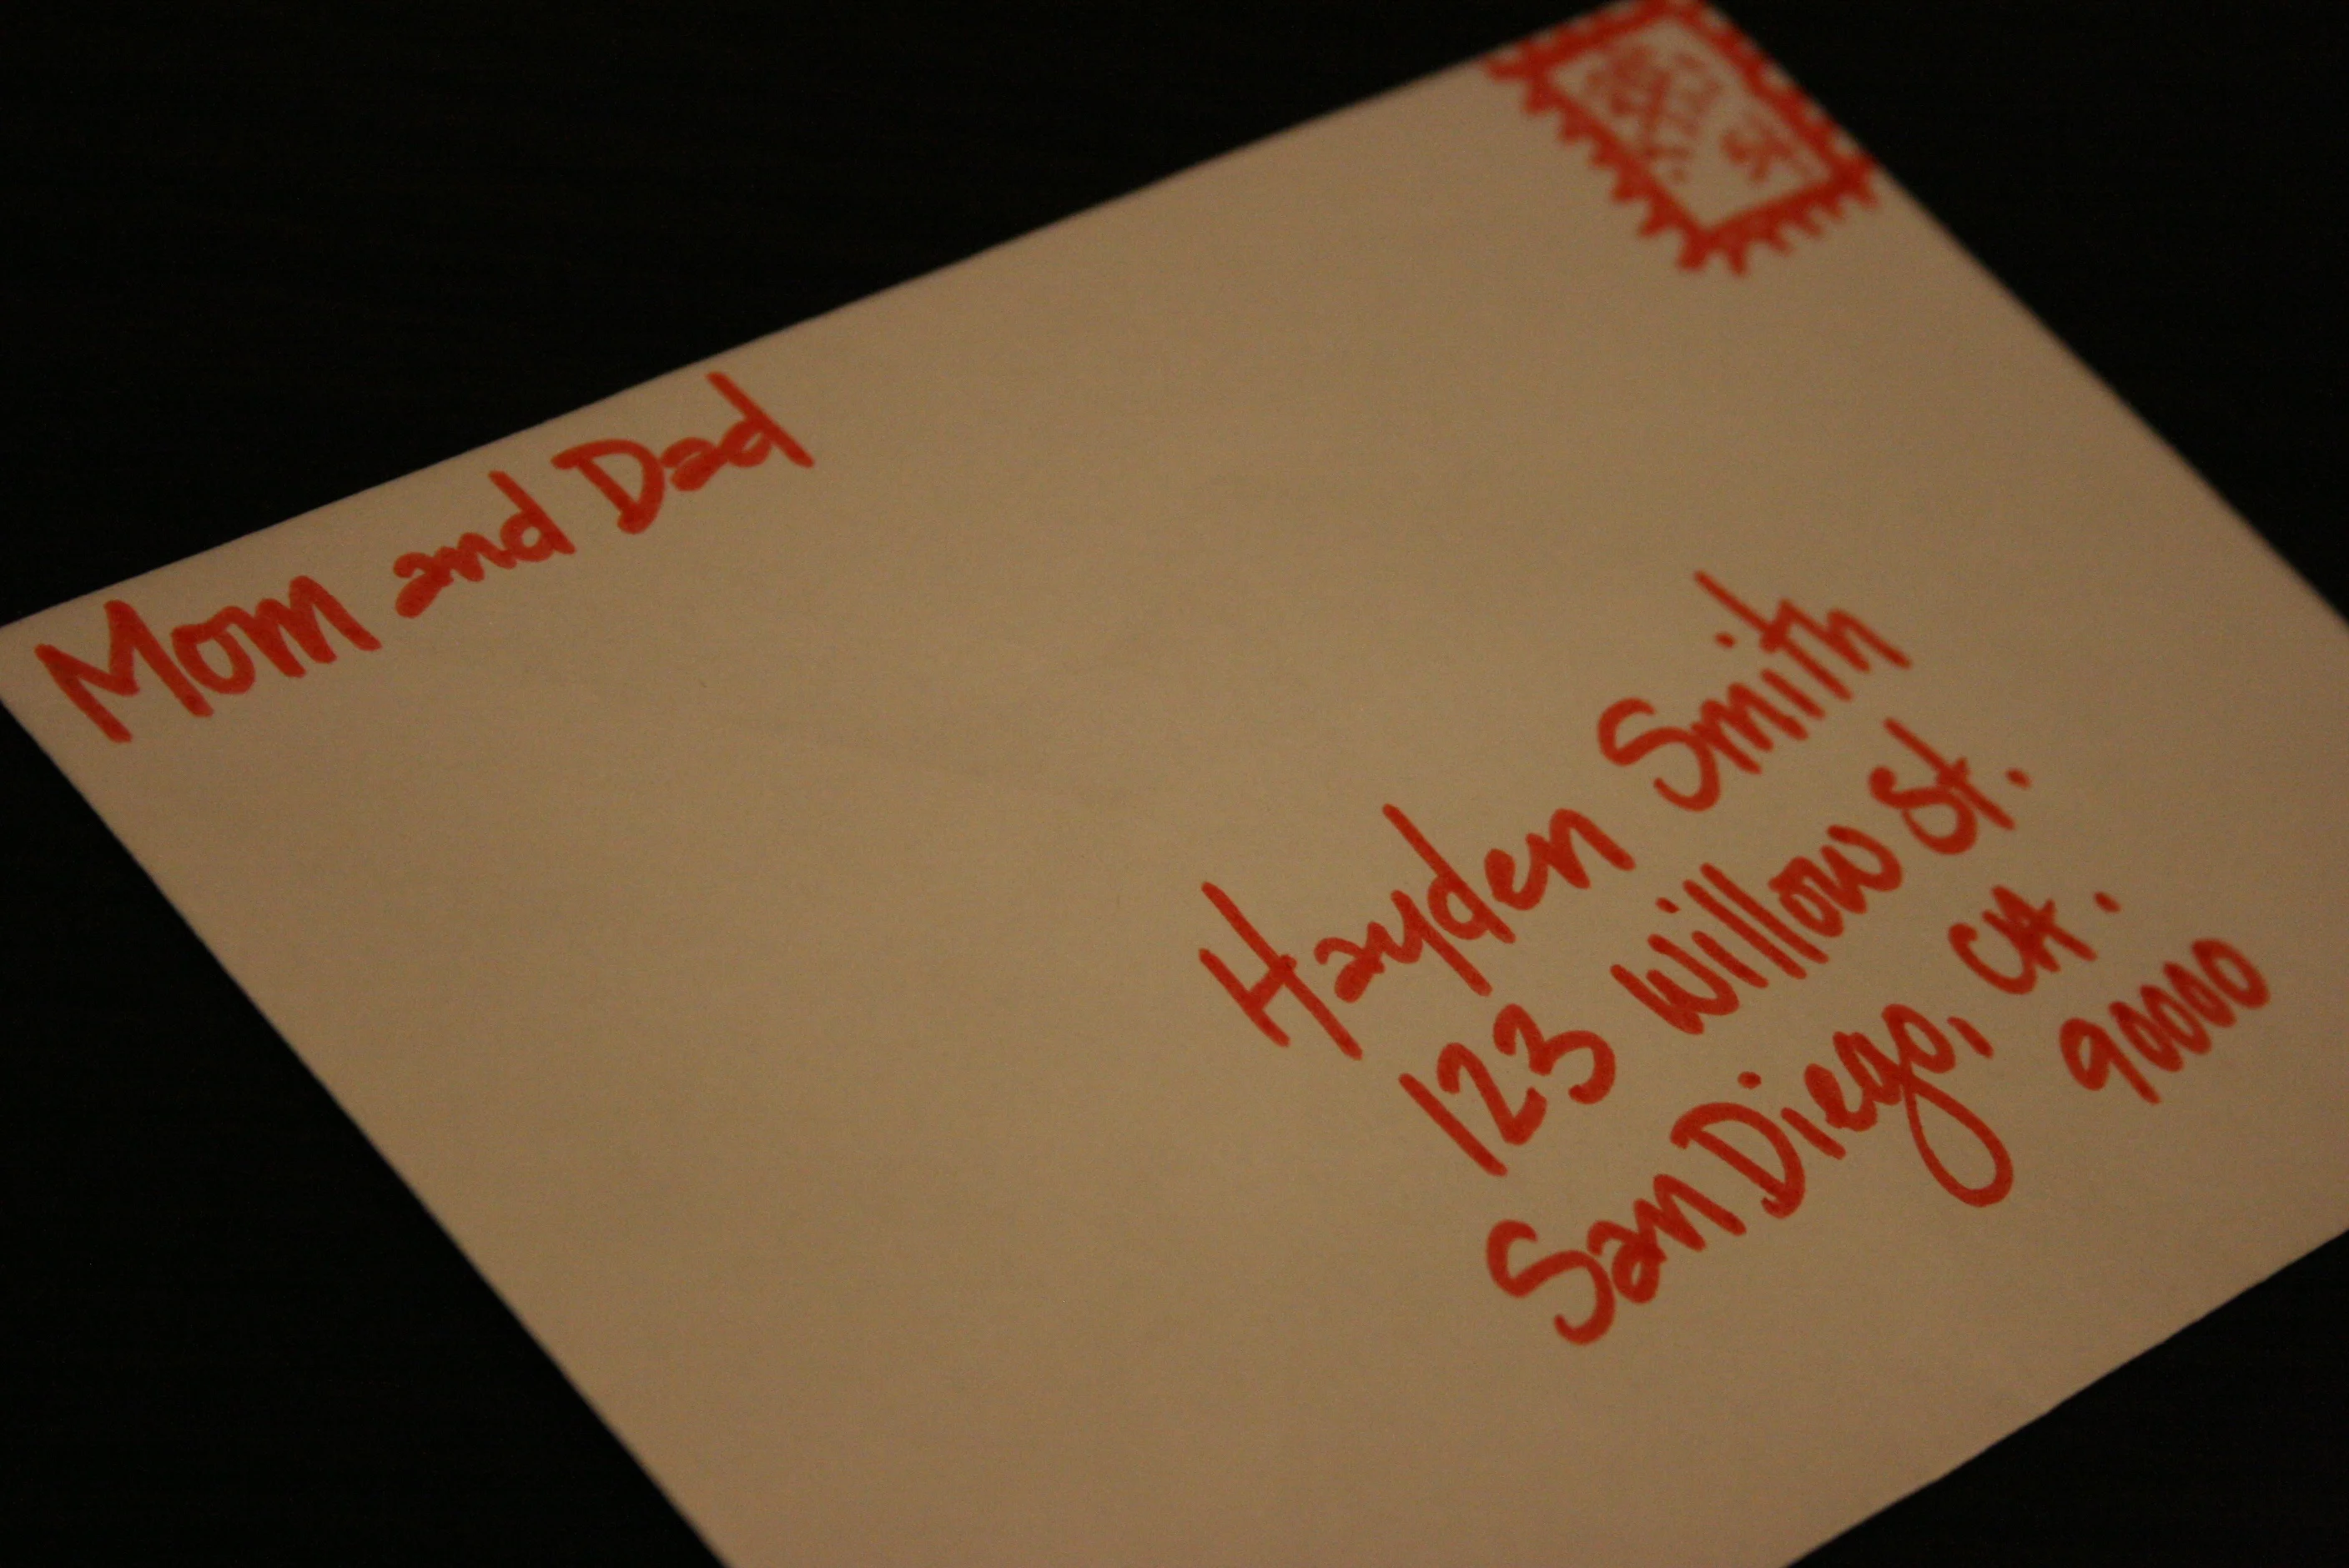 Mom and Dad
Hayden Smith
123 Willow St.
San Diego, CA.
90000